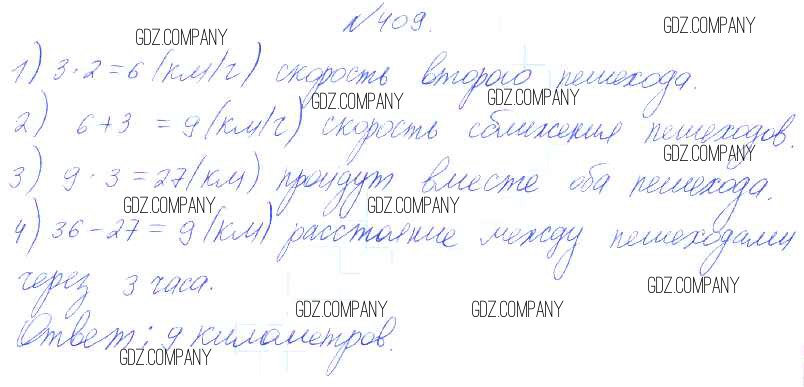 №409.
GDZ.COMPANY GDZ.COMPANY
1) 3·2=6 (км/ч) скорость второго пешехода.
GDZ.COMPANY GDZ.COMPANY
2) 6+3 = 9 (км/ч) скорость сближения пешеходов.
GDZ.COMPANY GDZ.COMPANY
3) 9·3=27(км) пройдут вместе оба пешехода.
GDZ.COMPANY GDZ.COMPANY
4) 36-27=9(км) расстояние между пешеходами
через 3 часа.
GDZ.COMPANY GDZ.COMPANY GDZ.COMPANY
Ответ: 9 километров.
GDZ.COMPANY GDZ.COMPANY